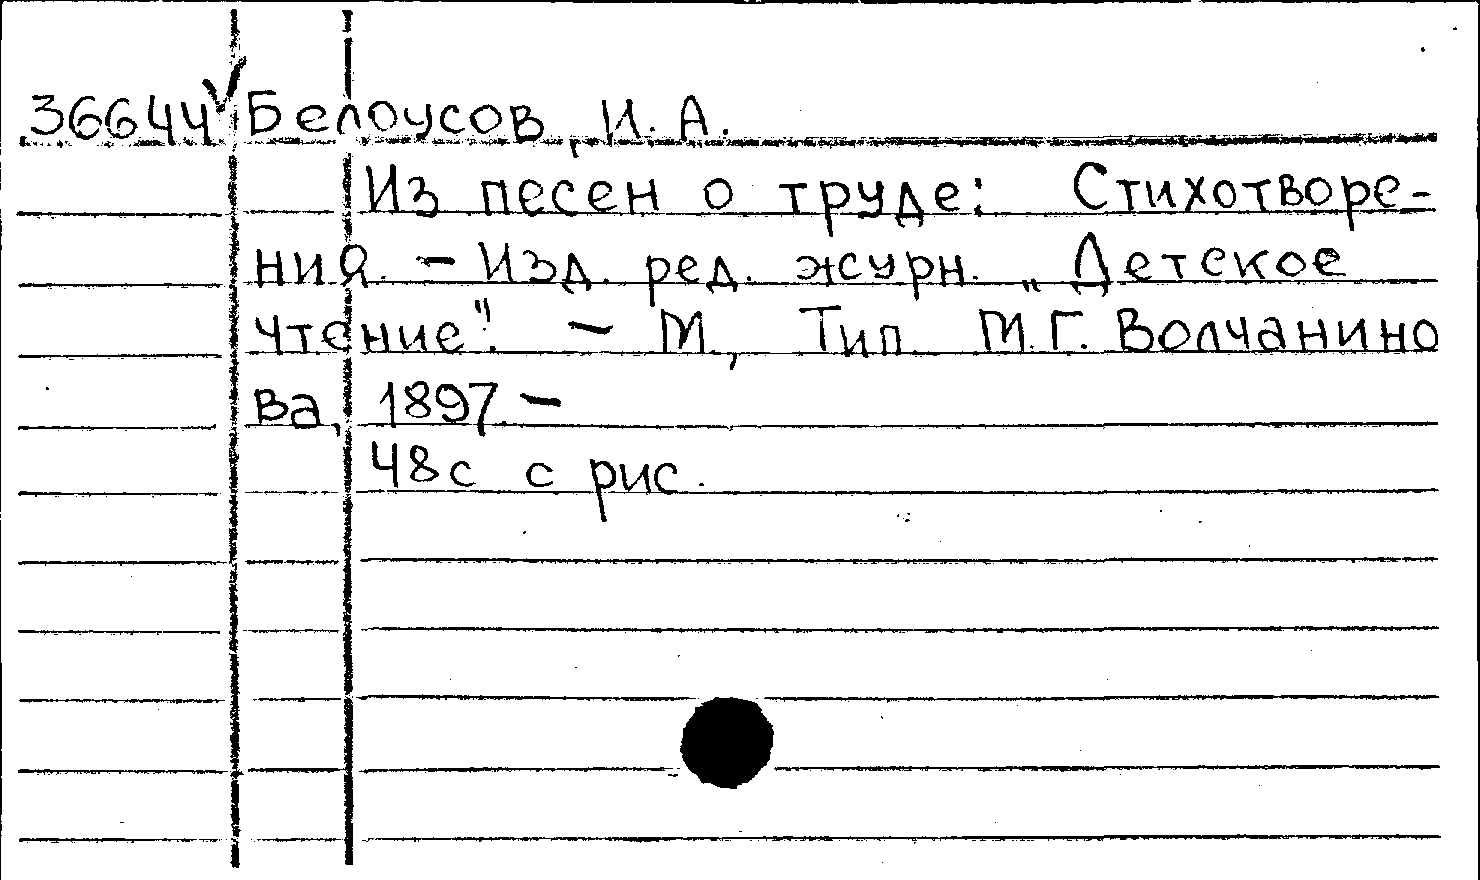 36644 Белоусов, И. А.
Из песен о труде: Стихотворе-
ния. - Изд. ред. журн. „Детское
чтение". - М., Тип. М.Г. Волчанино
ва, 1897. -
48с с рис.